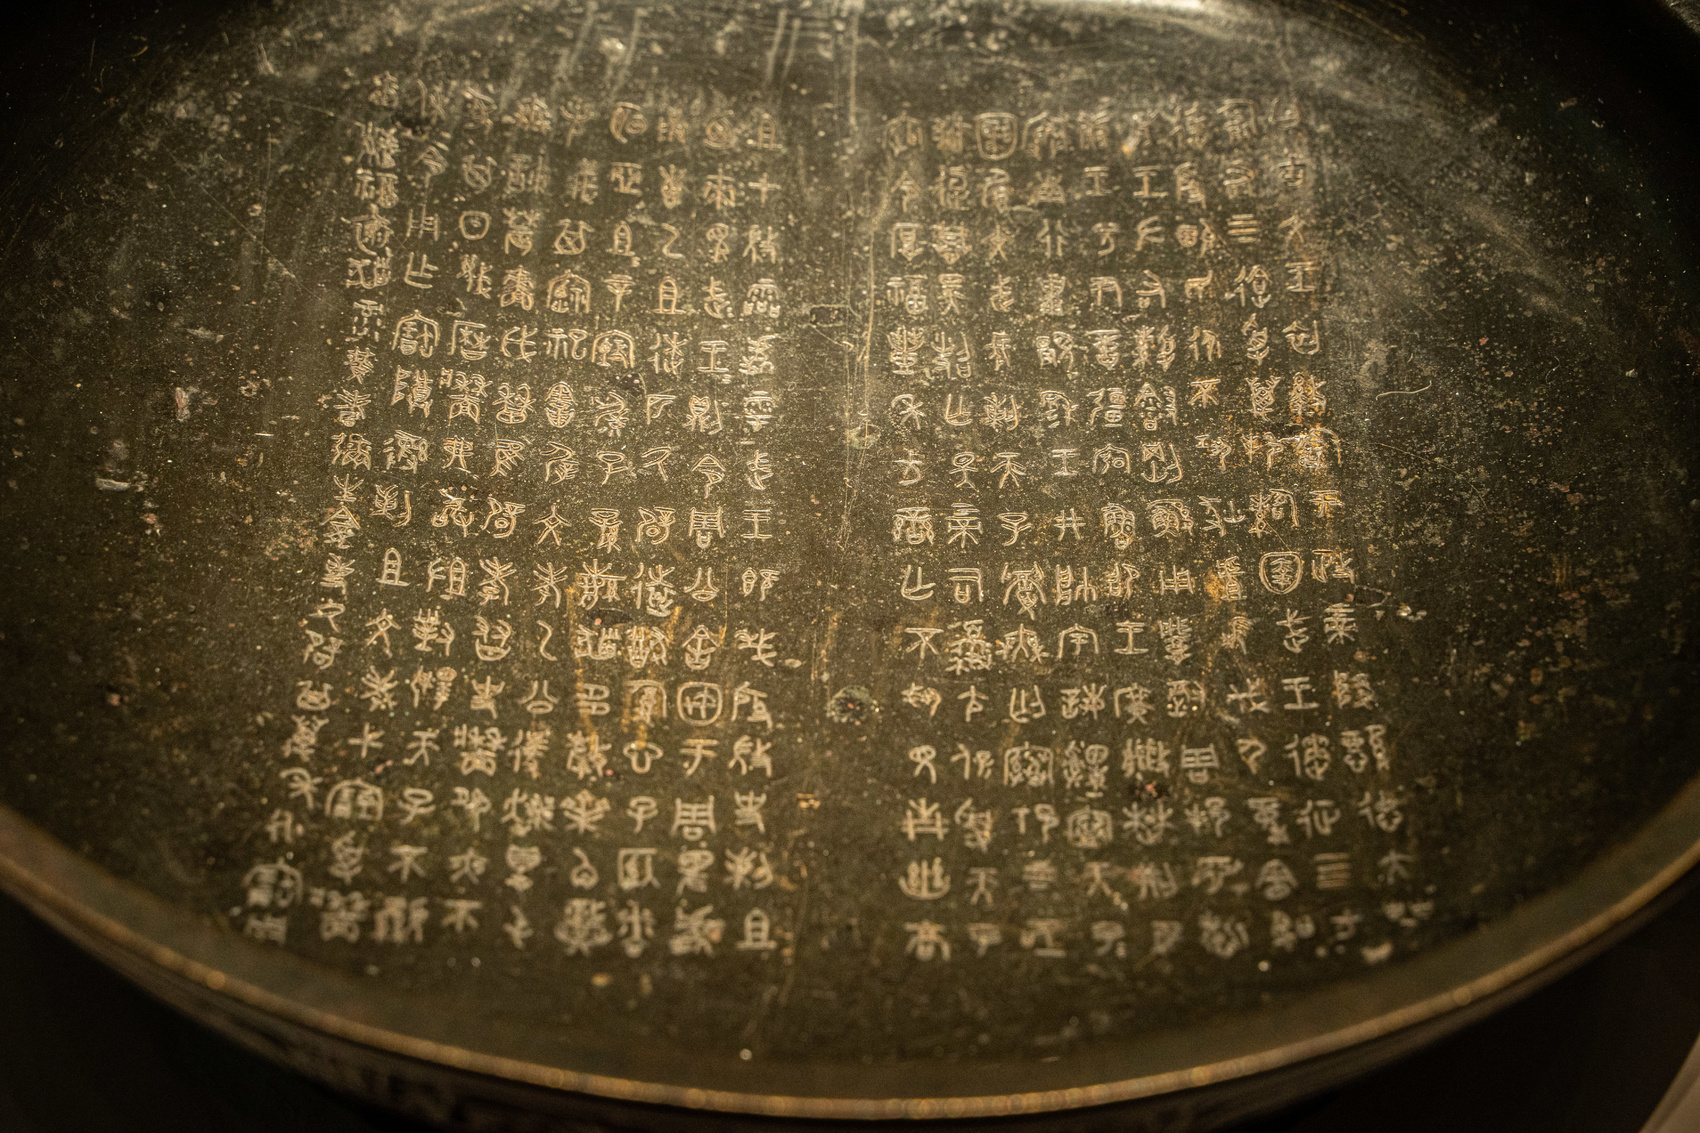 曰古文王初盭龢于政上帝降懿德大甹
匍有上下迨受萬邦圉武王遹征四方達
殷畯民永不巩狄虘伐夷童憲聖成
王左右綬剛鯀用肇徹周邦淵哲康
王分尹億疆宏魯昭王廣能楚荊隹寏南
行祗顯穆王井帥宇誨申寧天子天子
文武長剌天子眉無匄寋祁上下亟
桓慕昊照亡斁上帝司夒尢保受天子
綰令厚福豐年方蠻亡不見青幽高
且才微靈處雩武王既殷微史剌且
迺來見武王武王則令周公舍于周卑處
甬叀乙且逑匹氒辟遠猷腹心子
明亞且且辛毓子孫繁多釐齊角熾光
義其禋祀害屖文考乙公遽爽得屯無諫
農穡戉歷隹辟孝友史牆夙夜不
其日蔑歷牆弗敢沮對揚天子不顯
休令用乍寶尊彝剌且文考弋受牆
爾福懷彔黃耇彌生事氒辟其萬年永寶用